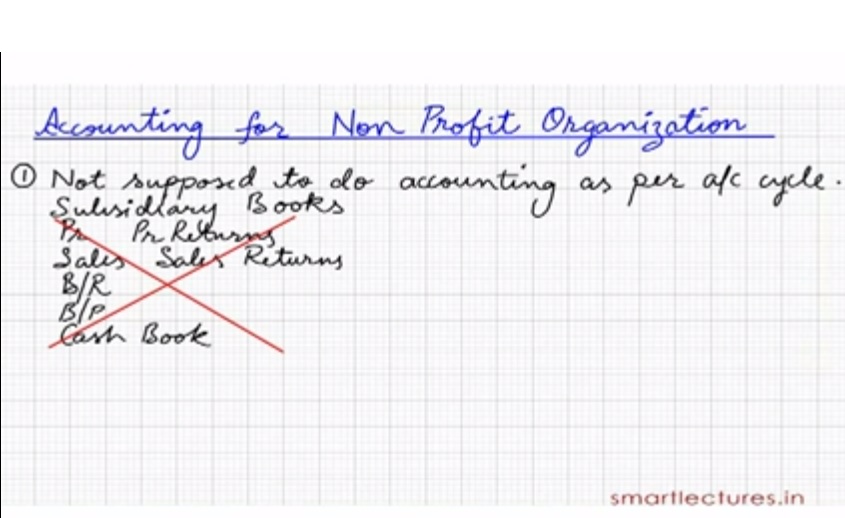 Accounting for Non Profit Organization
① Not supposed to do accounting as per a/c cycle.
Subsidiary Books
Pr Pr Returns
Sales Sales Returns
B/R
B/P
Cash Book
smartlectures.in